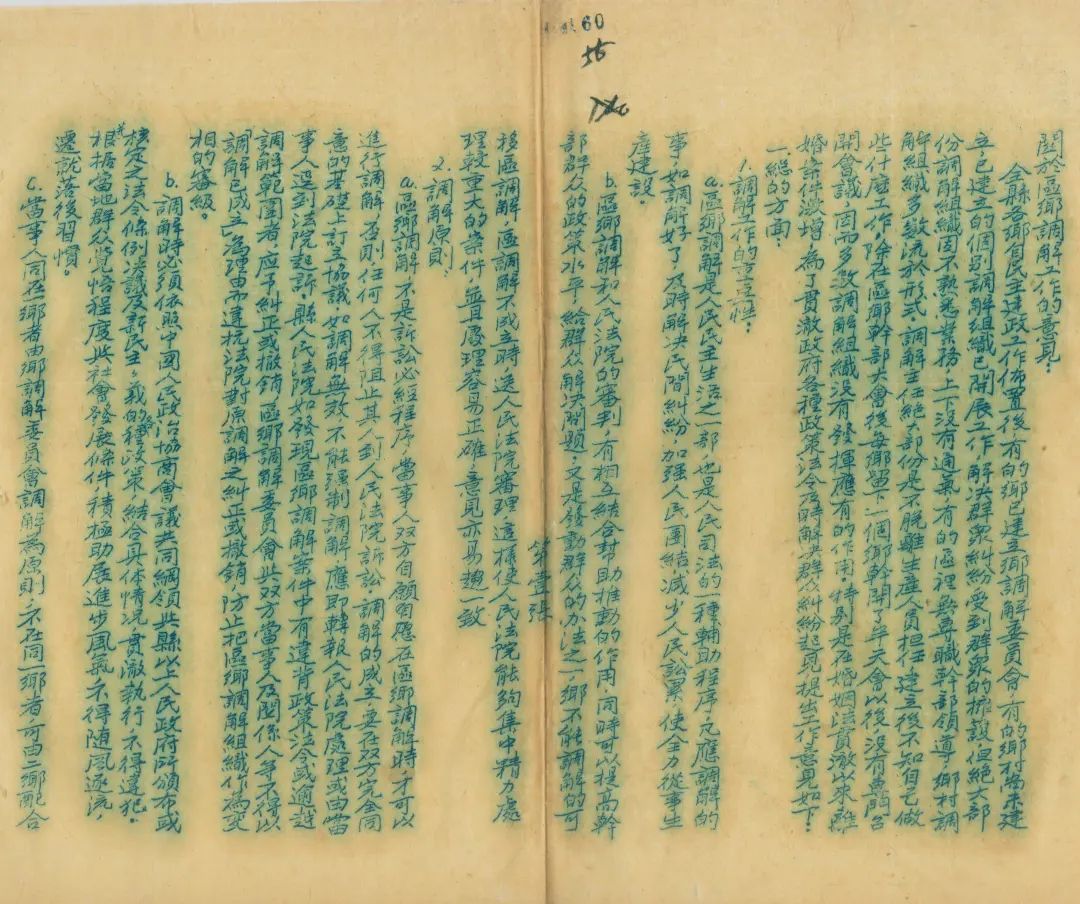 60
56
關於區鄉調解工作的意見:
全縣各鄉自民主建政工作佈置後有的鄉已建立鄉調解委員會,有的鄉村尚未建
立已建立的個別調解組織已開展工作解決群眾糾紛受到群眾的擁護,但絕大部
份調解組織因不熟悉業務,上下沒有通氣,有的區裡無專職幹部領導,鄉村調
解組織多數流於形式,調解主任絕大部份是不脫離生產人員担任,建立後不知自己做
些什麼工作,除在區鄉幹部大會後每鄉留下一個鄉幹開了半天會以後,沒有專門召
開會議,因而多數調解組織沒有發揮應有的作用,特別是在婚姻法貫澈以來離
婚案件激增,為了貫澈政府各種政策法令及時解決群众糾紛起見提出工作意見如下:
一總的方面:
1.調解工作的重要性:
a.區鄉調解是人民民主生活之一部,也是人民司法的一種輔助程序,凡應調解的
事,如調解好了,及時解決民間糾紛,加强人民團結,減少人民訟累,使全力從事生
產建設。
b.區鄉調解和人民法院的審判,有相互結合幫助推動的作用,同時可以提高幹
部群众的政策水平,給群众解決問題,又是發動群众的办法之一,鄉不能調解的可
第壹張
移區調解,區調解不成立時送人民法院審理,這樣使人民法院能夠集中精力處
理較重大的案件,並且處理容易正確,意見亦易趨一致
2.調解原則:
a.區鄉調解,不是訴訟必經程序,當事人双方自願有應在區鄉調解時,才可以
進行調解,否則任何人不得阻止其人到人民法院訴訟,調解的成立,要在双方完全同
意的基礎上訂立協議,如調解無效,不能強制調解,應即轉報人民法院處理或由當
事人逕到法院起訴,縣人民法院如發現區鄉調解案件中有違背政策法令或逾越
調解範圍者應予糾正或撤銷,區鄉調解委員會與双方當事人及関係人等不得以
「調解已成立」為理由而違抗法院對原調解之糾正或撤銷,防止把區鄉調解組織作為变
相的審級。
b.調解時必須依照中國人民政治協商會議共同綱領與縣以上人民政府所頒布或
核定之法令條例決議及新民主主義的各種政策,結合具体情况貫澈執行,不得違犯。
並根據當地群众覺悟程度與社會發展條件積極助展進步風氣,不得随風逐流,
遷就落後習慣。
c.當事人同在一鄉者由鄉調解委員會調解為原則,不在同一鄉者,可由二鄉配合